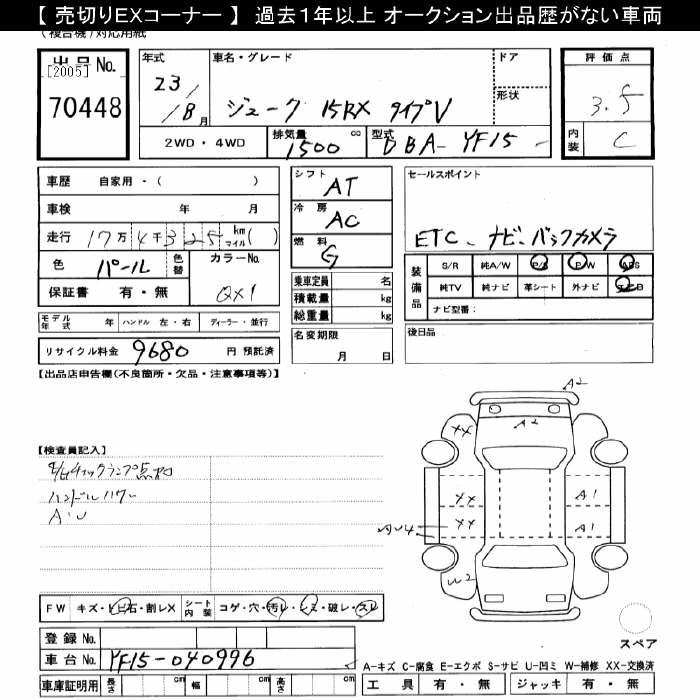 【 売切りEXコーナー 】 過去1年以上 オークション出品歴がない車両
(複合機)対応用紙
出品 No.
[2005]
70448
年式
23/
/8月
車名・グレード
ジューク 15RX タイプV
ドア
形状
2WD・4WD
排気量
1500 cc
型式
DBA-YF15
評価点
3.5
内装
C
車歴 自家用・( )
車検 年 月
走行 17万 4千 325 km マイル( )
色 パール 色替
カラーNo.
QX1
保証書 有・無
シフト
AT
冷房
AC
燃料
G
乗車定員 名
積載量 kg
総重量 kg
セールスポイント
ETC、ナビ、バックカメラ
装備品
S/R 純A/W P/S P/W ABS
純TV 純ナビ 革シート 外ナビ エアB
ナビ型番:
モデル年式 年 ハンドル 左・右 ディーラー・並行
リサイクル料金 9680 円 預託済
名変期限
月 日
後日品
【出品店申告欄(不良箇所・欠品・注意事項等)】
【検査員記入】
チェックランプ点灯
ハンドル
A・U
A2
A2
XX
XX
XX
A1
A1
AU4
W2
FW キズ・ヒビ石・割レX シート内装 コゲ・穴・汚レ・シミ・破レ・スレ
登録 No.
車台 No. YF15-040996
車庫証明用 長さ cm 幅 cm 高さ cm
スペア
A-キズ C-腐食 E-エクボ S-サビ U-凹ミ W-補修 XX-交換済
工具 有・無 ジャッキ 有・無